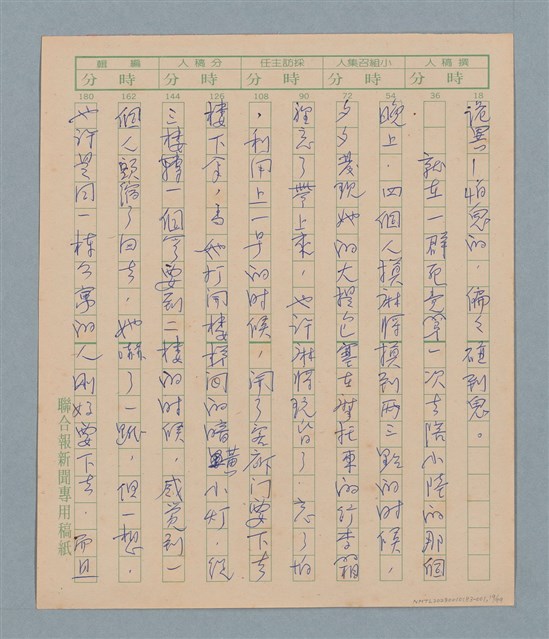 撰稿人
小組召集人
採訪主任
分稿人
編輯
時 分
時 分
時 分
時 分
時 分
18
36
54
72
90
108
126
144
162
180
詭異！怕鬼的，偏々碰到鬼。
就在一群死黨第一次去陪小陸的那個
晚上，四個人摸麻將摸到兩三點的时候，
夕夕發現她的大提包塞在摩托車的行李箱
裡忘了帶上來，也許麻將玩昏了，忘了怕
，利用上一号的时候，開了客廳门要下去
樓下拿，為她打開樓梯间的暗黃小灯，從
三樓轉一個彎要到二樓的时候，感觉到一
個人頭縮了回去，她嚇了一跳，但一想，
也許是同一棟公寓的人剛好要下去，而且
聯合報新聞專用稿紙